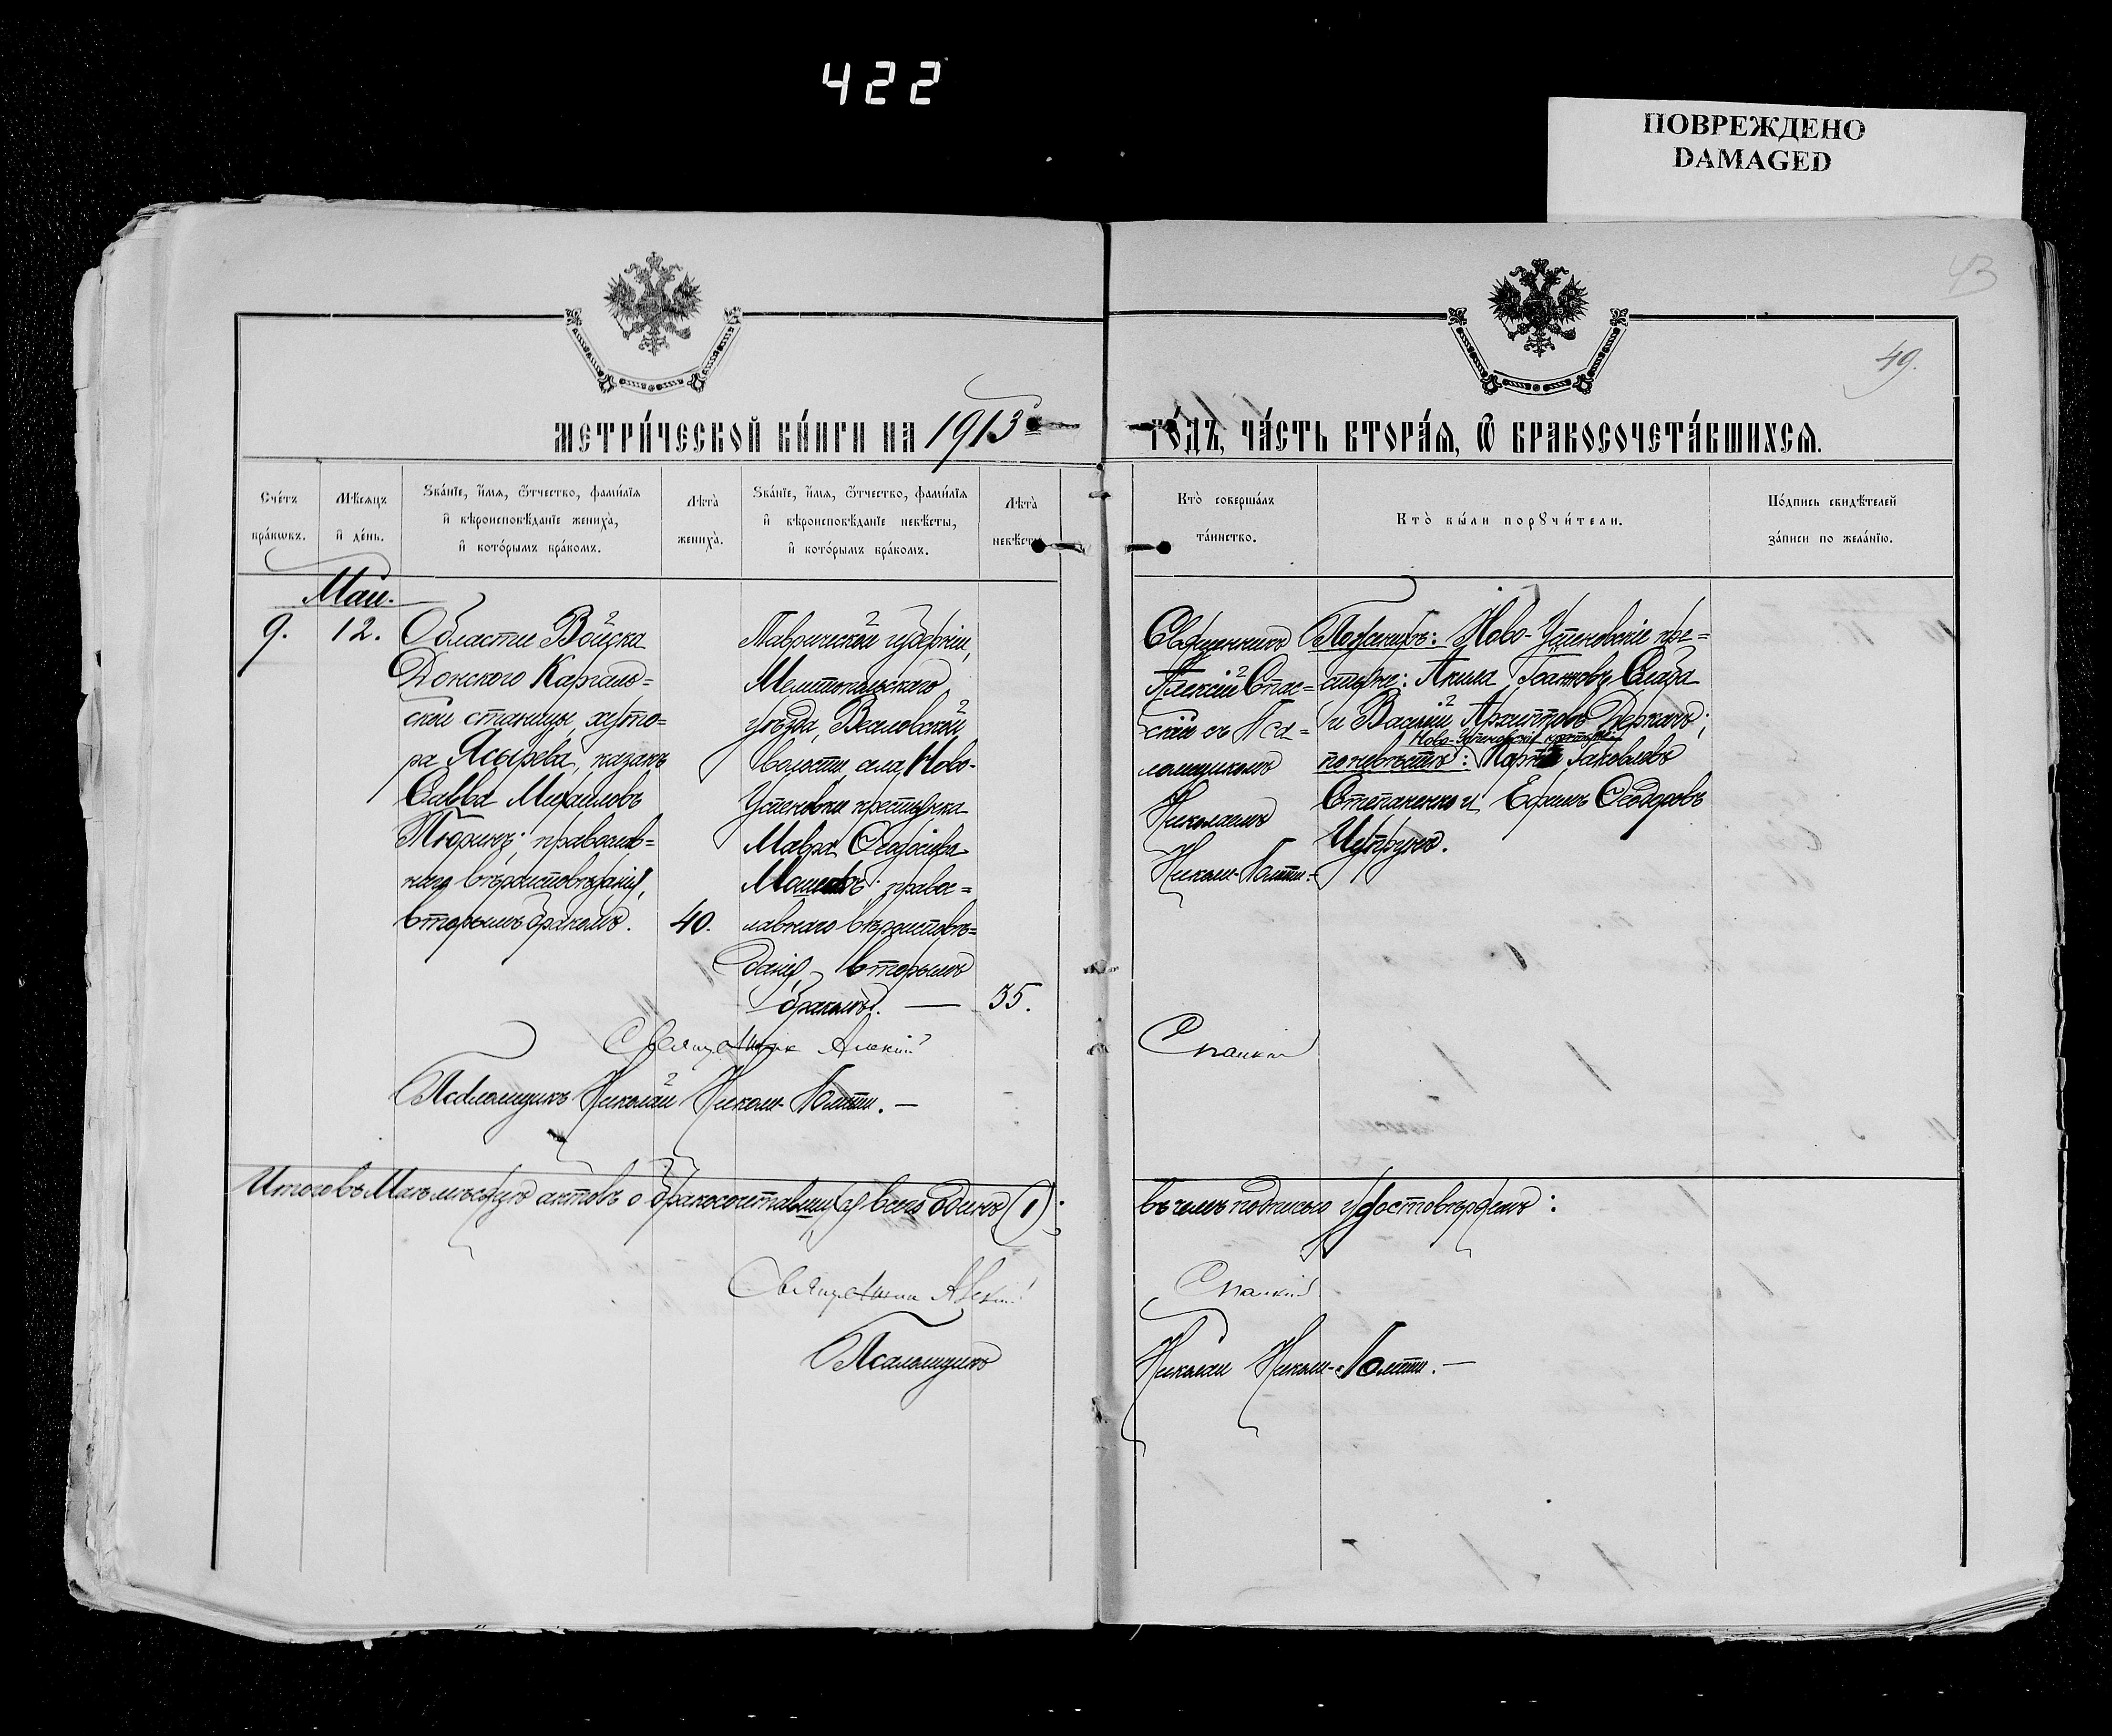 422
ПОВРЕЖДЕНО
DAMAGED
43
49.
МЕТРИ́ЧЕСКОЙ КНИ́ГИ НА 1913
ГО́ДЪ, ЧА́СТЬ ВТОРА́Я, Ѽ БРАКОСОЧЕТА́ВШИХСЯ.
Сче́тъ
бра́кѡвъ.
Мѣ́сяцъ
и҆ де́нь.
Ѕва́нїе, и҆́мя, ѻ҆́тчество, фами́лїя
и҆ вѣроисповѣ́данїе жениха̀,
и҆ кото́рымъ бра́комъ.
Лѣ́та̀
жениха̀.
Ѕва́нїе, и҆́мя, ѻ҆́тчество, фами́лїя
и҆ вѣроисповѣ́данїе невѣ́сты,
и҆ кото́рымъ бра́комъ.
Лѣ́та̀
невѣ́сты
Кто̀ соверша́лъ
та́инство.
Кто̀ бы́ли порꙋчи́тели.
По́дпись свидѣ́телей
за́писи по жела́нїю.
Май.
9.
12.
Области Войска
Донского Каргаль=
ской станицы, хуто=
ра Ясырева, казакъ
Савва Михаиловъ
Тюринъ; православ=
наго вѣроисповѣданія,
вторымъ бракомъ.
40.
Таврической губерніи,
Мелитопольскаго
уѣзда, Веселовской
волости, села Ново-
Успеновки крестьянка
Мавра Ѳеодосіева
правос=
лавнаго вѣроисповѣ=
данія, вторымъ
бракомъ. —
35.
Священникъ
Алексій Спас=
скій съ Пса=
ломщикомъ
Николаемъ
Николи-Політи.
По женихѣ: Ново-Успеновскіе кре=
стьяне: Іоанновъ Слава
и Василій Деркачъ;
Ново-Успеновскіе крестьяне
по невѣстѣ: Іаковлевъ
Степаненко и Ефимъ Ѳеодоровъ
Священникъ Алексій
Спасскій
Псаломщикъ Николай Николи-Політи. —
Итого въ Маѣ мѣсяцѣ актовъ о бракосочетавшихся всего одинъ (1);
въ чемъ подписью удостовѣряемъ:
Священникъ Алексій
Спасскій
Псаломщикъ
Николай Николи-Політи. —